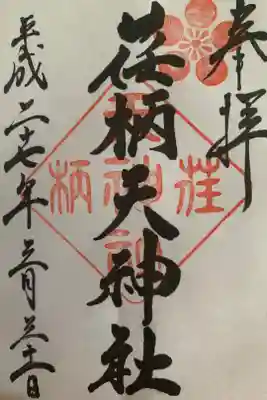 奉拝
荏柄天神社
平成二十七年三月三十一日
荏
柄